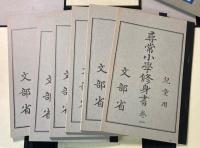 兒童用
尋常小學修身書 卷一
文部省
文部省
文部省
文部省
文部省
文部省